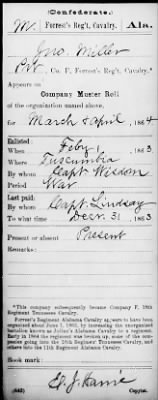 (Confederate.)
M. Forrest's Reg't, Cavalry. Ala.
Jno. Miller
Pvt, Co. F, Forrest's Reg't, Cavalry.*
Appears on
Company Muster Roll
of the organization named above,
for March & April, 1864
Enlisted:
When Feby, 1863
Where Tuscumbia
By whom Capt. Wisdom
Period War
Last paid:
By whom Capt. Lindsay
To what time Decr. 31 1863
Present or absent Present
Remarks:
*This company subsequently became Company F, 18th
Regiment Tennessee Cavalry.
Forrest's Regiment Alabama Cavalry appears to have been
organized about June 1, 1863, by increasing the organization
known as Julian's Alabama Cavalry to a regiment.
Early in 1864 the regiment was broken up, some of the companies
going into the 18th Regiment Tennessee Cavalry, and
others into the 11th Regiment Alabama Cavalry.
Book mark:
(642)
Copyist.